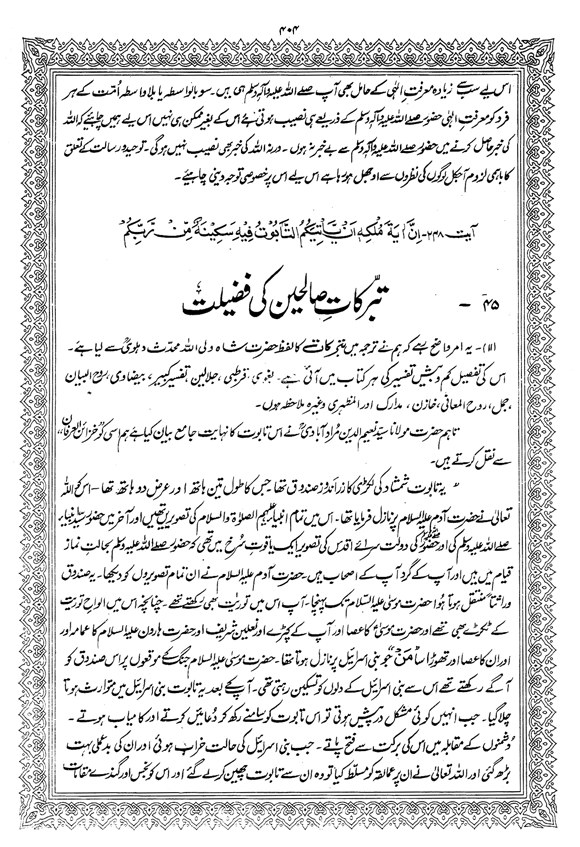 ۴۰۴
اس لیے سب سے زیادہ معرفتِ الٰہی کے حامل بھی آپ صلے اللہ علیہ وآلہ وسلم ہی ہیں۔ سو بالواسطہ یا بلا واسطہ اُمّت کے ہر
فرد کو معرفتِ الٰہی حضور صلے اللہ علیہ وآلہ وسلم کے ذریعے ہی نصیب ہوتی ہے اس کے بغیر ممکن ہی نہیں اس لیے ہمیں چاہیئے کہ اللہ
کی خبر حاصل کرنے میں حضور صلے اللہ علیہ وآلہ وسلم سے بے خبر نہ ہوں۔ ورنہ اللہ کی خبر بھی نصیب نہیں ہوگی۔ توحید و رسالت کے تعلق
کا باہمی لزوم آجکل لوگوں کی نظروں سے اوجھل ہو رہا ہے اس لیے اس پر خصوصی توجہ دینی چاہیئے۔
آیت ۲۴۸۔ اِنَّ اٰيَةَ مُلْكِهٖ اَنْ يَّاْتِيَكُمُ التَّابُوْتُ فِيْهِ سَكِيْنَةٌ مِّنْ رَّبِّكُمْ
۴۵ ۔ تبرّکاتِ صالحین کی فضیلت
(الا)۔ یہ امر واضح رہے کہ ہم نے ترجمہ میں تبرکات کا لفظ حضرت شاہ ولی اللہ محدّث دہلویؒ سے لیا ہے۔
اس کی تفصیل کم و بیش تفسیر کی ہر کتاب میں آئی ہے۔ بغوی، قرطبی، جلالین، تفسیر کبیر، بیضاوی، روح البیان
، جمل، روح المعانی، خازن، مدارک اور المظہری وغیرہ ملاحظہ ہوں۔
تاہم حضرت مولانا سیّد نعیم الدین مُراد آبادیؒ نے اس تابوت کا نہایت جامع بیان کیا ہے ہم اسی کو خزائن العرفان
سے نقل کرتے ہیں۔
" یہ تابوت شمشاد کی لکڑی کا زر اندوز صندوق تھا جس کا طول تین ہاتھ اور عرض دو ہاتھ تھا۔ اس کو اللہ
تعالیٰ نے حضرت آدم علیہ السلام پر نازل فرمایا تھا۔ اس میں تمام انبیاء علیہم الصلوٰۃ والسلام کی تصویریں تھیں اور آخر میں حضور سید انبیاء
صلے اللہ علیہ وسلم کی اور حضورؐ کی دولت سرائے اقدس کی تصویر ایک یاقوت سُرخ میں تھی کہ حضور صلے اللہ علیہ وسلم بحالتِ نماز
قیام میں ہیں اور آپ کے گرد آپ کے اصحاب ہیں۔ حضرت آدم علیہ السلام نے ان تمام تصویروں کو دیکھا۔ یہ صندوق
وراثتاً منتقل ہوتا ہوا حضرت موسیٰ علیہ السلام تک پہنچا۔ آپ اس میں توریت بھی رکھتے تھے۔ چنانچہ اس میں الواحِ توریت
کے ٹکڑے بھی تھے اور حضرت موسیٰؑ کا عصا اور آپ کے کپڑے اور نعلین شریف اور حضرت ہارون علیہ السلام کا عمامہ اور
اور ان کا عصا اور تھوڑا سا مَن جو بنی اسرائیل پر نازل ہوتا تھا۔ حضرت موسیٰ علیہ السلام جنگ کے موقعوں پر اس صندوق کو
آگے رکھتے تھے اس سے بنی اسرائیل کے دلوں کو تسکین رہتی تھی۔ آپ کے بعد یہ تابوت بنی اسرائیل میں متوارث ہوتا
چلا گیا۔ جب انہیں کوئی مشکل درپیش ہوتی تو اس تابوت کو سامنے رکھ کر دُعائیں کرتے اور کامیاب ہوتے۔
دشمنوں کے مقابلہ میں اس کی برکت سے فتح پاتے۔ جب بنی اسرائیل کی حالت خراب ہوئی اور ان کی بدعملی بہت
بڑھ گئی اور اللہ تعالیٰ نے ان پر عمالقہ کو مسلّط کیا تو وہ ان سے تابوت چھین کر لے گئے اور اس کو نجس اور گندے مقامات